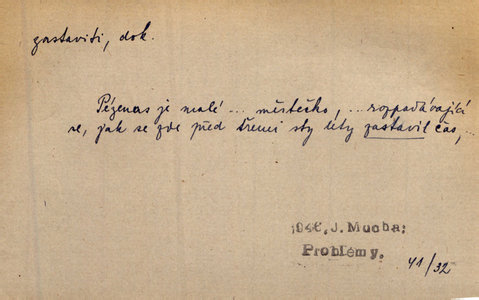 zastaviti, dok.
Pézenas je malé ... městečko, ... rozpadávající
se, jak se zde před třemi sty léty zastavil čas, ...
1946, J. Mucha:
Problémy.
41/32